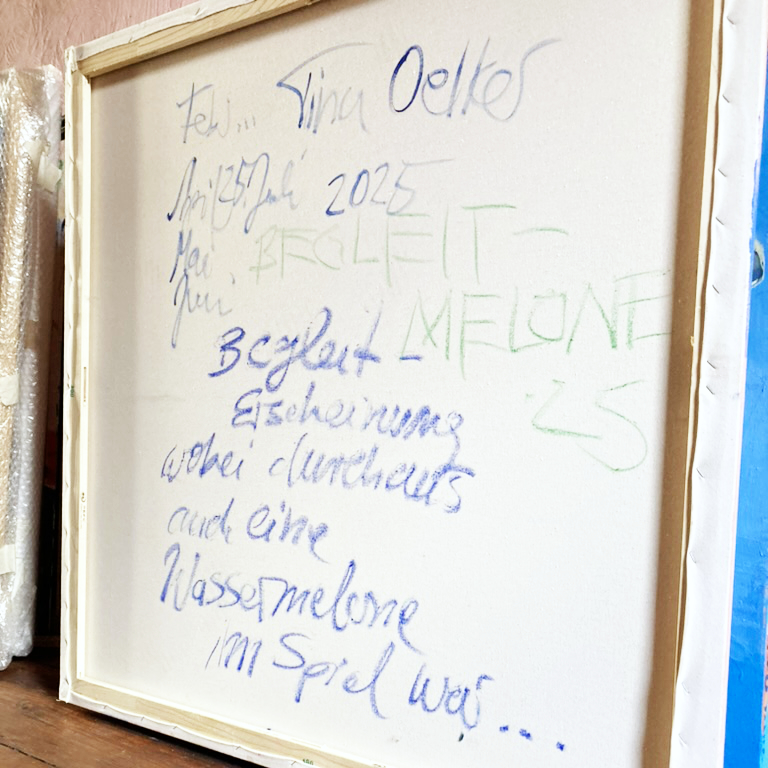 Feb... Tina Oelker
April 25. Juli 2025
Mai
Juni
BEGLEIT-
MELONE
25
Begleit-
Erscheinung
wobei durchaus
auch eine
Wassermelone
im Spiel war....